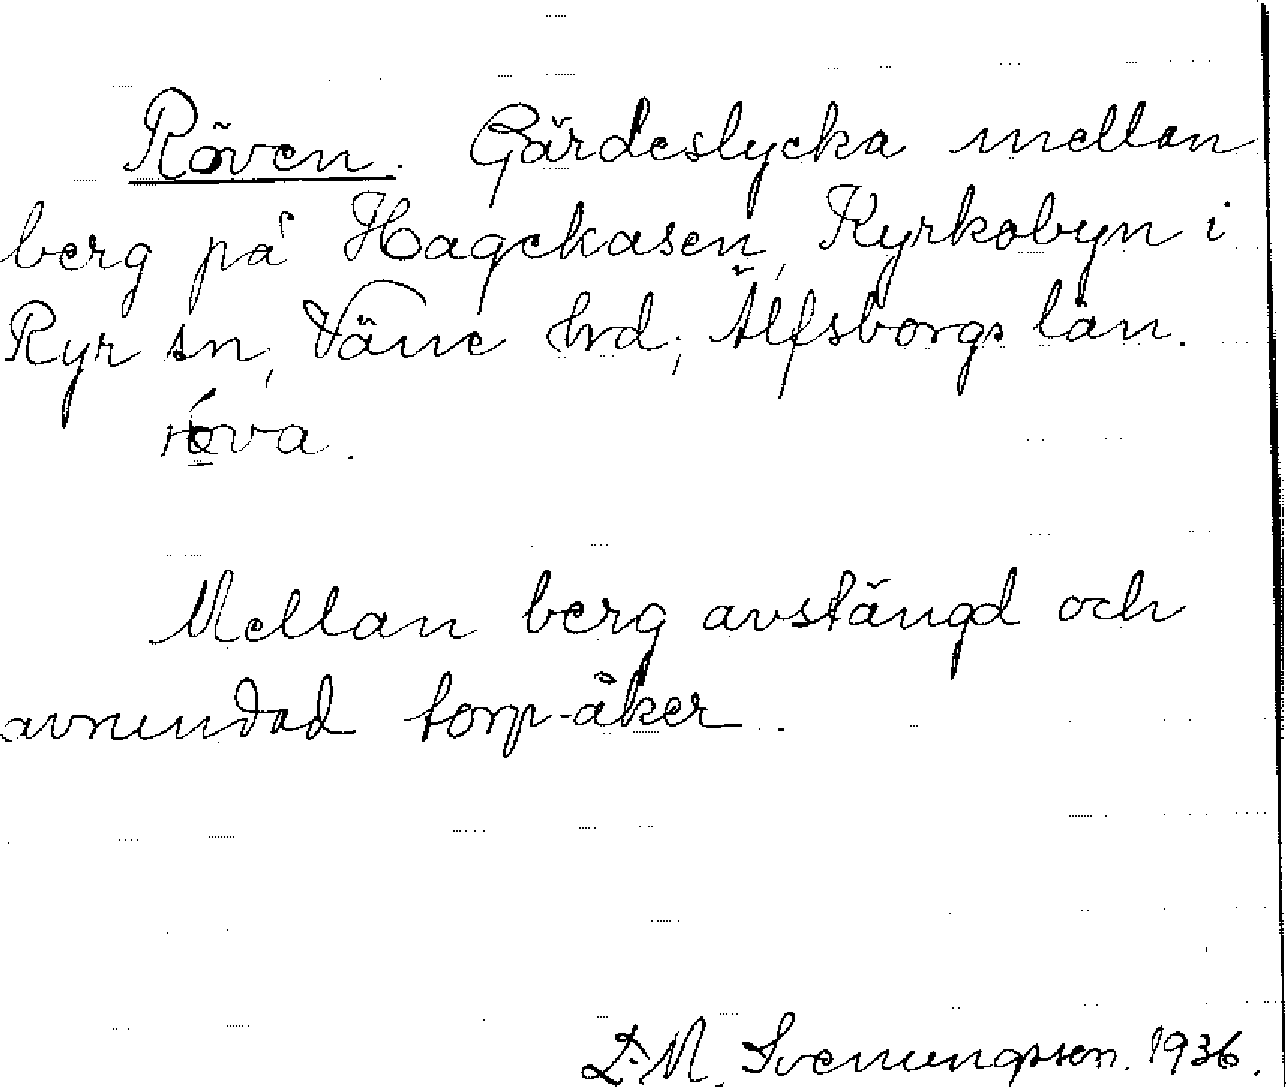 Röven. Gärdeslycka mellan
berg på Hagekasen, Kyrkobyn i
Ryr sn, Väne hrd; Älfsborgs län.
röva.
Mellan berg avstängd och
avrundad torp-åker.
D.M. Svenungsson. 1936.